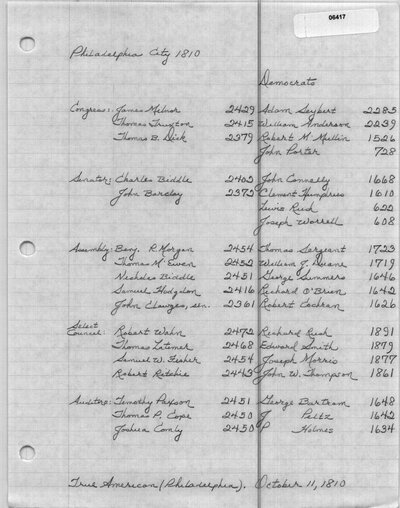 06417
Philadelphia City 1810
Democrats
Congress: James Milnor 2429 Adam Seybert 2285
Thomas Truxton 2415 William Anderson 2239
Thomas B. Dick 2379 Robert McMullin 1526
John Porter 728
Senator: Charles Biddle 2402 John Connelly 1668
John Barclay 2372 Clement Humphries 1610
Lewis Rush 622
Joseph Worrell 608
Assembly: Benj. R. Morgan 2454 Thomas Sergeant 1723
Thomas McEwen 2452 William J. Duane 1719
Nicholas Biddle 2451 George Summers 1646
Samuel Hodgdon 2416 Richard O'Brien 1642
John Clawges, sen. 2361 Robert Cochran 1626
Select
Council: Robert Waln 2472 Richard Rush 1891
Thomas Latimer 2468 Edward Smith 1879
Samuel W. Fisher 2454 Joseph Morris 1877
Robert Ritchie 2443 John W. Thompson 1861
Auditors: Timothy Paxson 2451 George Bartram 1648
Thomas P. Cope 2450 J Peltz 1642
Joshua Comly 2450 P Holmes 1634
True American (Philadelphia). October 11, 1810